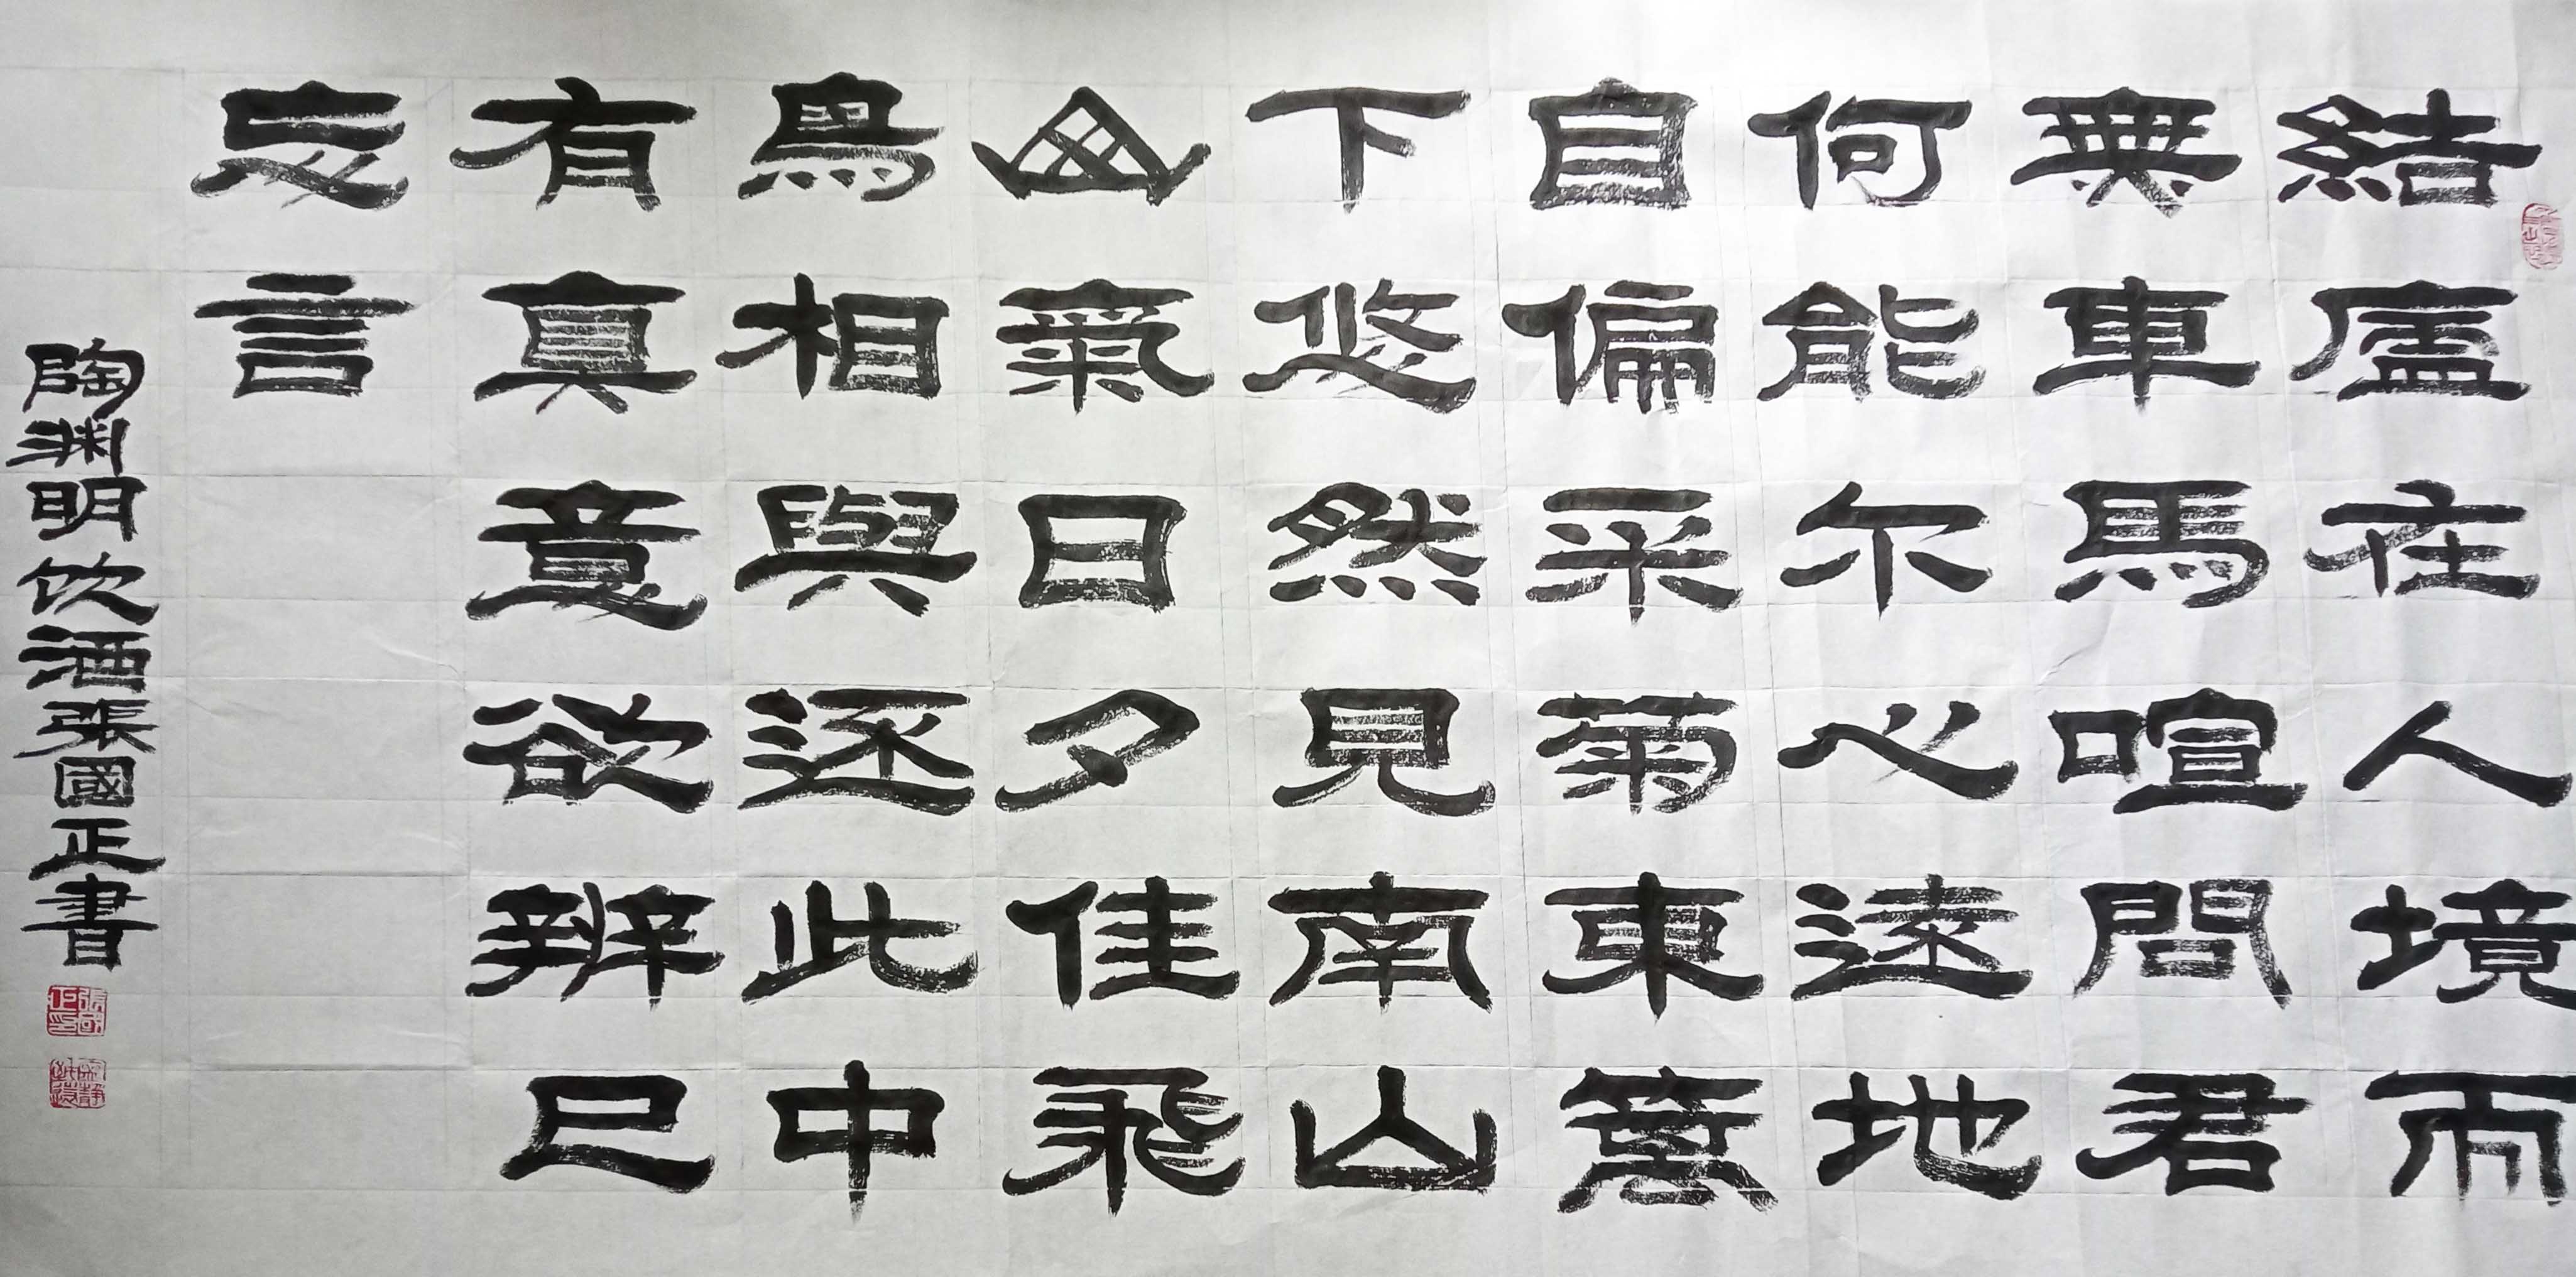 結廬在人境而
無車馬喧問君
何能尔心遠地
自偏采菊東篱
下悠然見南山
山氣日夕佳飛
鳥相與还此中
有真意欲辨已
忘言
陶渊明饮酒張國正書
張國正印